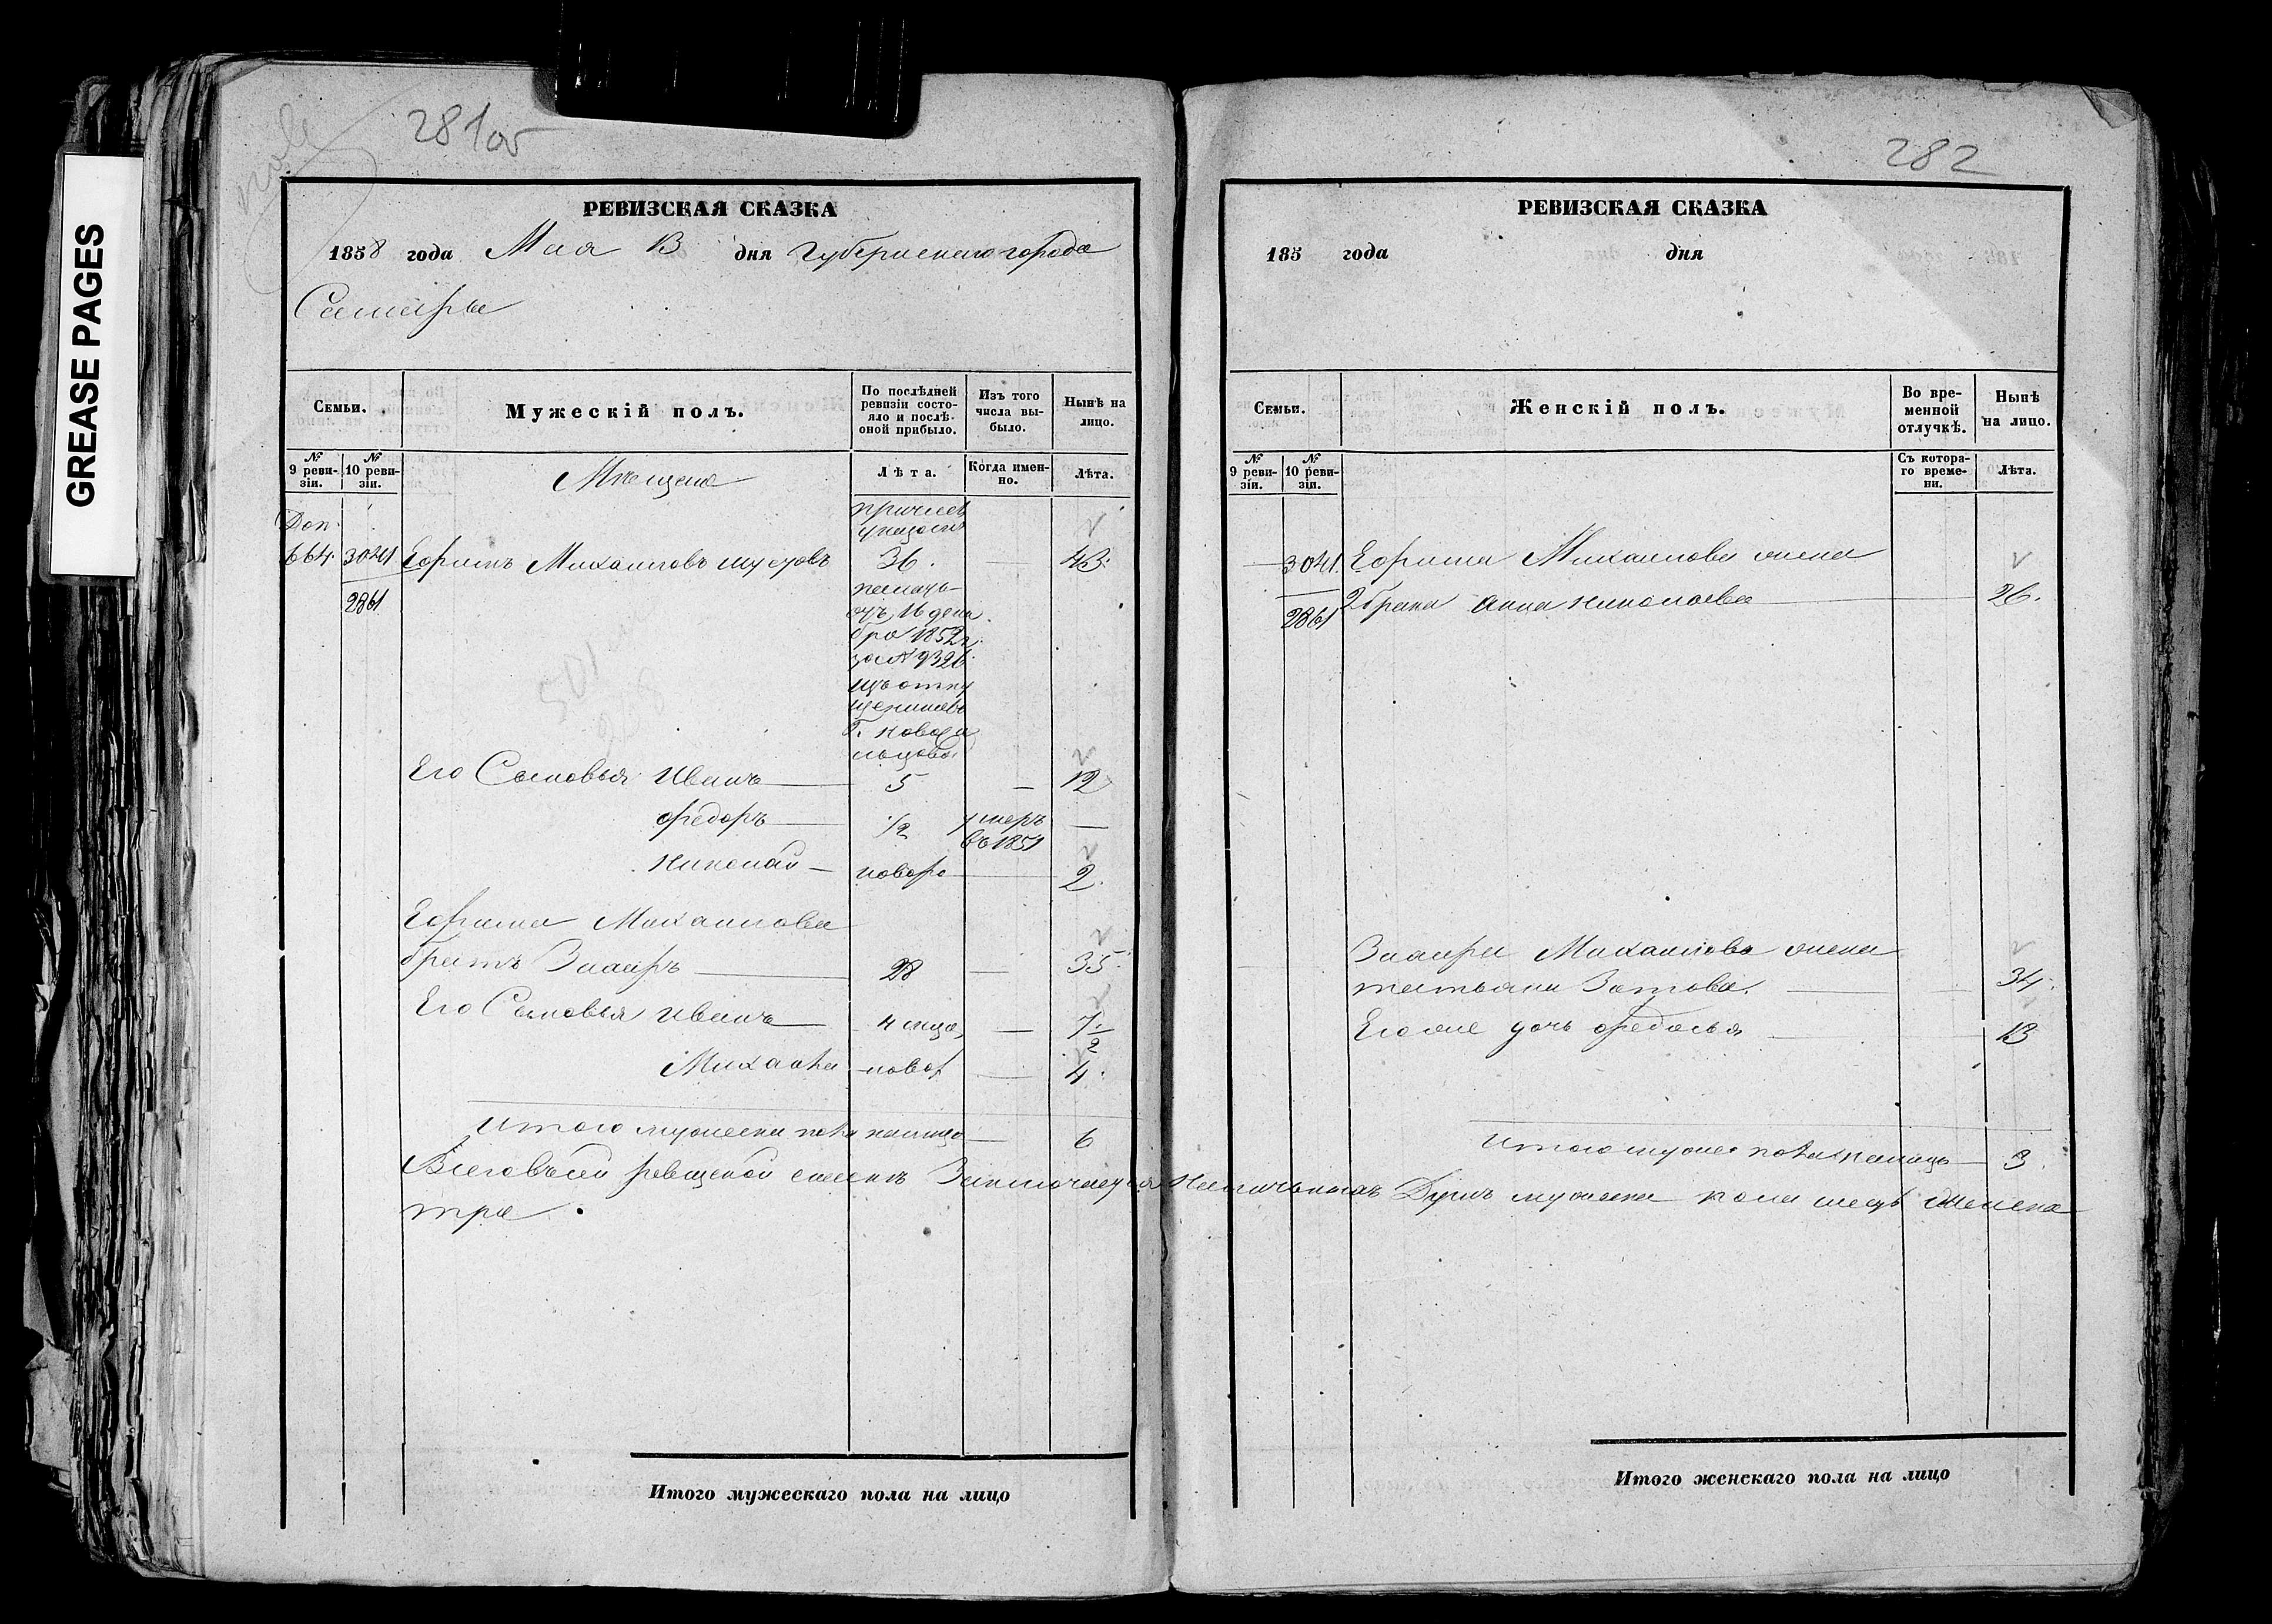 GREASE PAGES
281об
РЕВИЗСКАЯ СКАЗКА
1858 года Мая 13 дня Губернскаго города
Самары
Семьи.
Мужескій полъ.
По послѣдней ревизіи состояло и послѣ оной прибыло.
Изъ того числа выбыло.
Нынѣ на лицо.
№ 9 ревизіи.
№ 10 ревизіи.
Мѣщане
Лѣта.
Когда именно.
Лѣта.
Доп.
664. 3041 Ефимъ Михайловъ 36. — 43.
2861
16 дека
бря 1852 г.
за № 9326
изъ отпу
щенниковъ
Г. Новоса
льцова
Его Сыновья Иванъ 5 — 12
Федоръ 1/2 умеръ въ 1851 —
Николай новоро 2.
Ефима Михайлова
братъ Захаръ 28 — 35.
Его Сыновья Иванъ 4 — 7 1/2
Михаила новор 4.
Итого мужеска пола налицо — 6
Всего въ сей ревизской сказкѣ Заключается Наличныхъ Душъ мужеска пола шесть женска
три.
Итого мужескаго пола на лицо
282
РЕВИЗСКАЯ СКАЗКА
185 года дня
Семьи.
Женскій полъ.
Во временной отлучкѣ.
Нынѣ на лицо.
№ 9 ревизіи.
№ 10 ревизіи.
Съ котораго времени.
Лѣта.
3041. Ефима Михайлова жена
2861 2 брака Анна Николаева 26.
Захара Михайлова жена
татьяна Зотова. 34.
Его же дочь Федосья 13
3.
Итого женскаго пола на лицо